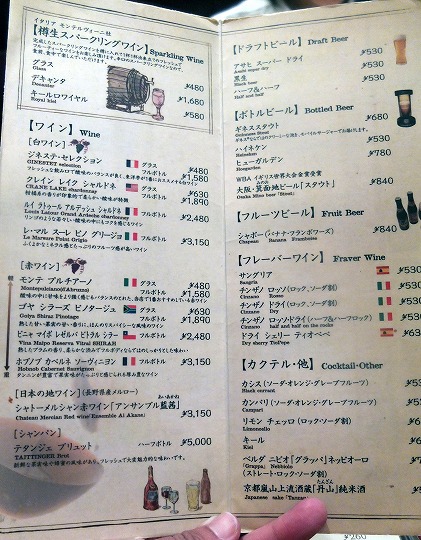 イタリア モンテルヴィーニ社
【樽生スパークリングワイン】Sparkling Wine
グラス ¥480
Glass
デキャンタ ¥1,680
Decanter
キールロワイヤル ¥580
Royal kiel
【ワイン】 Wine
[白ワイン]
ジネステ・セレクション グラス ¥480
GINESTET selection フルボトル ¥1,580
クレイン レイク シャルドネ グラス ¥630
CRANE LAKE chardonay フルボトル ¥1,890
ルイ ラトゥール アルデッシュ シャルドネ
Louis Latour Grand Ardeche chardonnay フルボトル ¥2,480
レ・マル スーレ ピノ グリージョ フルボトル ¥3,150
Le Marsure Point Grigio
[赤ワイン]
モンテ プルチアーノ グラス ¥480
Montepulciano d'Abruzzi フルボトル ¥1,580
ゴヤ シラーズ ピノタージュ グラス ¥630
Goya Shiraz Pinotage フルボトル ¥1,890
ビニャ マイポ レゼルバ ビトラル シラー フルボトル ¥2,480
Vina Maipo Reserva Vitral SHIRAH
ホブノブ カベルネ ソーヴィニヨン フルボトル ¥3,150
Hobnob Cabernet Sauvignon
[日本の地ワイン](長野県産メルロー)
シャトーメルシャン赤ワイン「アンサンブル藍茜」 ¥3,150
Chateau Mercian Red wine「Ensemble Ai Akane」
[シャンパン]
テタンジェ ブリュット ハーフボトル ¥5,000
TAITTINGER Brut
【ドラフトビール】 Draft Beer
アサヒ スーパー ドライ ¥530
Asahi super dry
黒生 ¥530
Black
ハーフ&ハーフ ¥530
Half and half
【ボトルビール】 Bottled Beer
ギネススタウト ¥680
Guinness Stout
ハイネケン ¥530
Heineken
ヒューガルデン ¥780
Hoegarden
WBA イギリス世界大会金賞受賞
大阪・箕面地ビール「スタウト」 ¥840
Osaka Mino beer 「Stout」
【フルーツビール】 Fruit Beer
シャポー(バナナ・フランボワーズ) ¥840
Chapeau Banana Framboise
【フレーバーワイン】 Fraver Wine
サングリア ¥530
Sangria
チンザノ ロッソ(ロック、ソーダ割) ¥530
Cinzano Rosso
チンザノ ドライ(ロック、ソーダ割) ¥530
Cinzano Dry
チンザノ ロッソドライ(ハーフ&ハーフロック) ¥530
Cinzano half and half on the rocks
ドライ シェリー ティオペペ
Dry sherry TioPepe
【カクテル・他】 Cocktail·Other
カシス(ソーダ・オレンジ・グレープフルーツ)
Black currant
カンパリ(ソーダ・オレンジ・グレープフルーツ)
Campari
リモン チェッロ(ロック・ソーダ割)
Limoncello
キール
Kiel
ベルダ ニビオ「グラッパ」ネッビオーロ
「Grappa」 Nebbiolo
(ストレート・ロック・ソーダ割)
京都嵐山上流酒蔵「丹山」純米酒
Japanese sake「Tanzan」